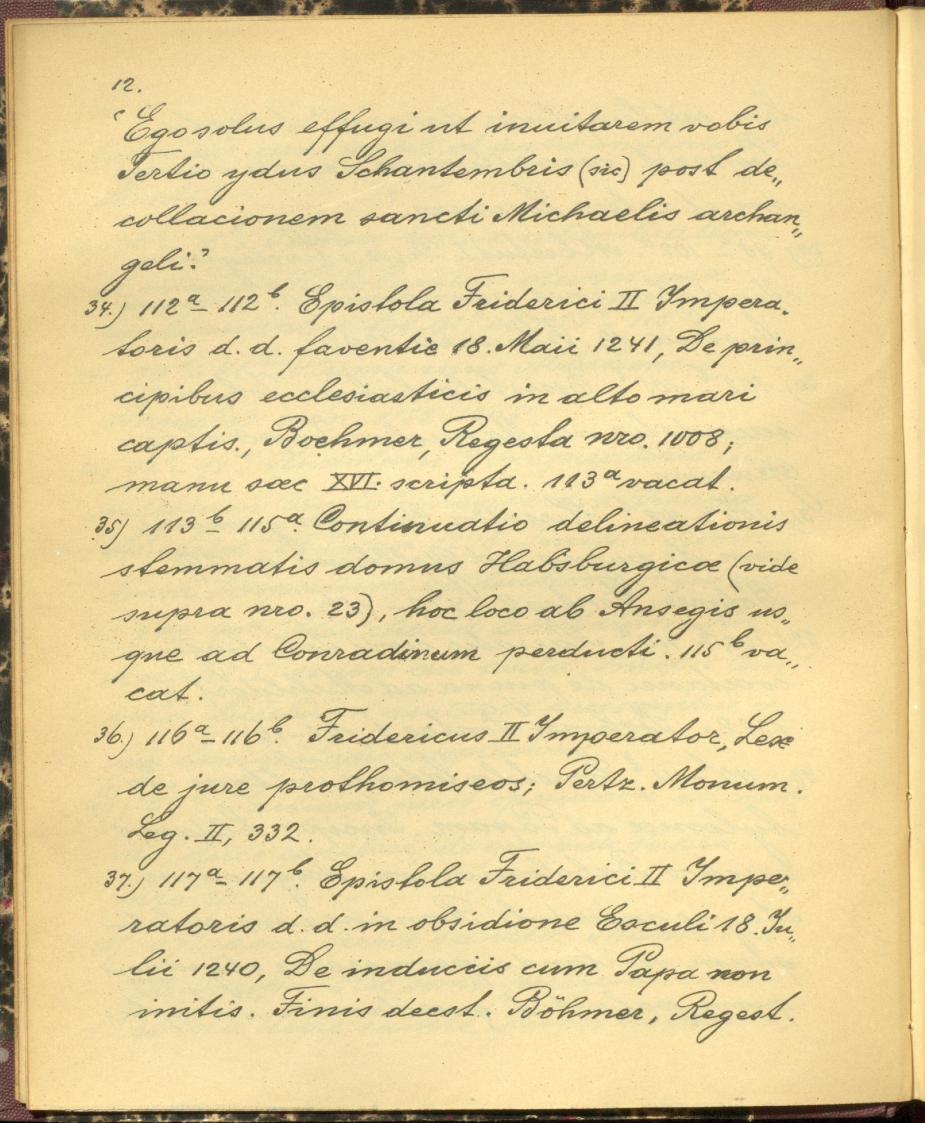 12.
"Ego solus effugi ut inuitarem vobis
Tertio ydus Schantembris (sic) post de„
collacionem sancti Michaelis archan„
geli."
34.) 112a - 112b. Epistola Friderici II Impera„
toris d. d. faventie 18. Maii 1241, De prin„
cipibus ecclesiasticis in alto mari
captis., Boehmer, Regesta nro. 1008;
manu sæc XVI. scripta. 113a vacat.
35) 113b - 115a. Continuatio delineationis
stemmatis domus Habsburgicæ (vide
supra nro. 23), hoc loco ab Ansegis us„
que ad Conradinum perducti. 115b va„
cat.
36.) 116a - 116b. Fridericus II Imperator, Lex
de jure prothomiseos; Pertz. Monum.
Leg. II, 332.
37.) 117a - 117b. Epistola Friderici II Impe„
ratoris d. d. in obsidione Esculi 18. Ju„
lii 1240, De induciis cum Papa non
initis. Finis deest. Böhmer, Regest.